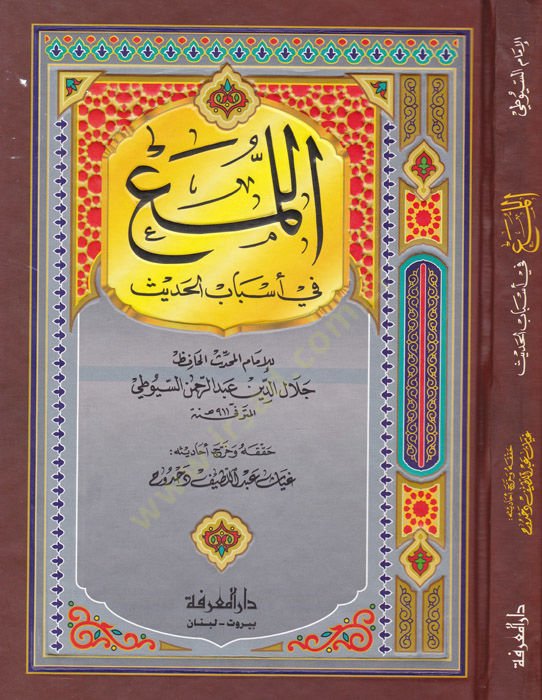 اللُّمَع
في أسباب الحديث
للإمام المحدث الحافظ
جلال الدين عبد الرحمن السيوطي
المتوفى ٩١١ هـ سنة
حققه وخرج أحاديثه:
غياث عبد اللطيف دحروج
دار المعرفة
بيروت - لبنان
الإمام السيوطي
اللمع في أسباب الحديث
حققه وخرج أحاديثه:
غياث عبد اللطيف دحروج
دار المعرفة